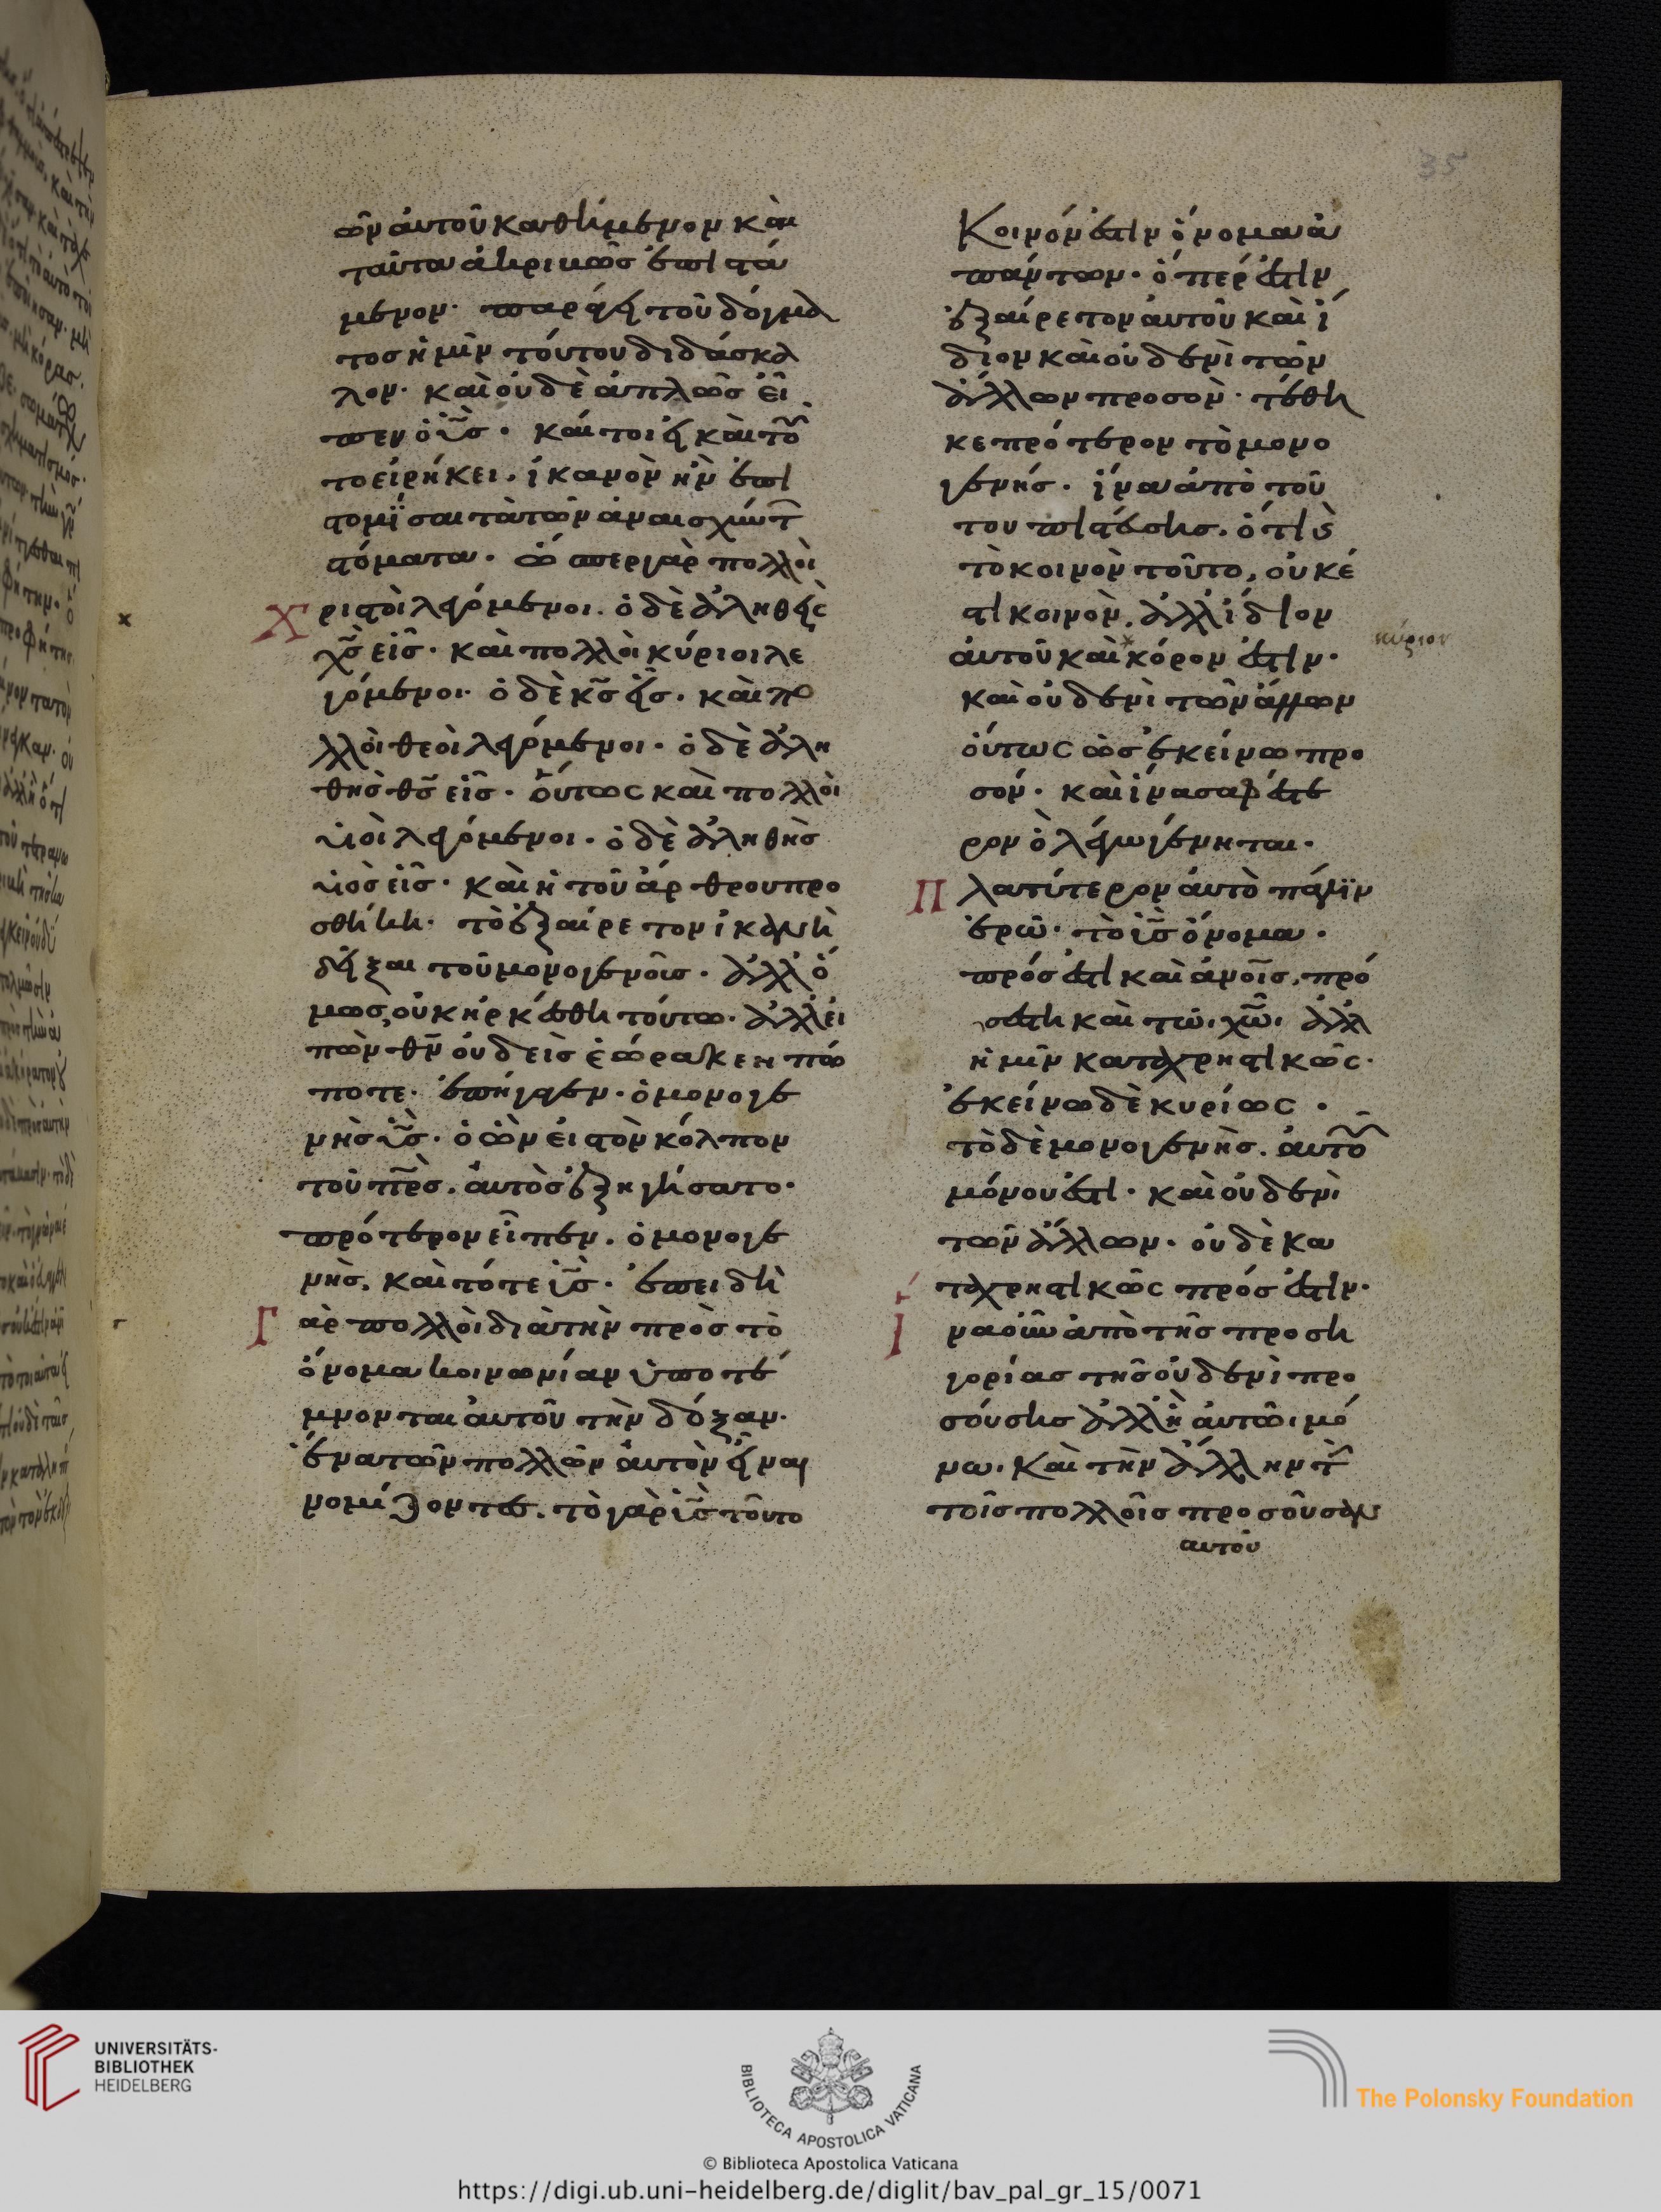 35
ῶν αὐτοῦ καθήμενον καὶ
ταῦτα ἀκριβῶς ἐπιστά
μενον. παρέχει τοῦ δόγμα
τος ἡμῖν τούτου διδάσκα
λον. καὶ οὐδὲ ἁπλῶς εἶ
πεν ὁ υἱ̅ς̅. καίτοι εἰ καὶ τοῦ
το εἰρήκει. ἱκανὸν ἦν ἐπι
στομίσαι τὰ τῶν ἀναισχύντ
στόματα. ὥσπερ γὰρ πολλοὶ
Χριστοὶ λεγόμενοι. ὁ δὲ ἀληθεὶς
χ̅ς̅ εἷς. καὶ πολλοὶ κύριοι λε
γόμενοι. ὁ δὲ κ̅ς̅ εἷς. καὶ πο
λλοὶ θεοὶ λεγόμενοι. ὁ δὲ ἀλη
θὴς θ̅ς̅ εἷς. οὕτως καὶ πολλοὶ
υἱοὶ λεγόμενοι. ὁ δὲ ἀληθὴς
υἱὸς εἷς. καὶ ἡ τοῦ ἄρθρου προ
σθήκη. τὸ ἐξαίρετον ἱκανὴ
δεῖξαι τοῦ μονογενοῦς. ἀλλ' ὅ
μως, οὐκ ἠρκέσθη τούτω. ἀλλ' εἰ
πὼν θ̅ν̅ οὐδεὶς ἑώρακεν πώ
ποτε. ἐπήγαγεν. ὁ μονογε
νὴς υἱ̅ς̅. ὁ ὢν εἰς τὸν κόλπον
τοῦ π̅ρ̅ς̅. αὐτὸς ἐξηγήσατο.
πρότερον εἶπεν. ὁ μονογε
νὴς. καὶ τότε υἱ̅ς̅. ἐπειδὴ
Γὰρ πολλοὶ διὰ τὴν πρὸς τὸ
ὄνομα κοινωνίαν ὑποτέ
μνονται αὐτοῦ τὴν δόξαν.
ἕνα τῶν πολλῶν αὐτὸν εἶναι
νομίζοντες. τὸ γὰρ υἱ̅ς̅ τοῦτο
Κοινόν ἐστιν ὄνομα ἁ
πάντων. ὅπερ ἐστὶν
ἐξαίρετον αὐτοῦ καὶ ἴ
διον καὶ οὐδενὶ τῶν
ἄλλων προσὸν. τέθει
κε πρότερον τὸ μονο
γενής. ἵνα ἀπὸ τού
του πιστεύσης. ὅτι καὶ
τὸ κοινὸν τοῦτο, οὐκ ἔ
στι κοινὸν. ἀλλ' ἴδιον
αὐτοῦ καὶ κόρον ἐστίν.
κύριον
καὶ οὐδενὶ τῶν ἄλλων
οὕτως ὡς ἐκείνω προ
σόν. καὶ ἵνα σαφέστε
ρον ὃ λέγω γένηται.
Πλατύτερον αὐτὸ πάλιν
ἐρῶ. τὸ υἱ̅ς̅ ὄνομα.
πρόσεστι καὶ ἀνοις, πρό
σεστι καὶ τῶ χω. ἀλλ'
ἡμῖν καταχρηστικῶς.
ἐκείνω δὲ κυρίως.
τὸ δὲ μονογενὴς. αὐτοῦ
μόνου ἐστὶ. καὶ οὐδενὶ
τῶν ἄλλων. οὐδὲ κα
ταχρηστικῶς πρόσεστιν.
Ἵνα οὖν ἀπὸ τῆς προση
γορίας τῆς οὐδενὶ προ
σούσης ἀλλ' ἢ αὐτῶ μό
νω. καὶ τὴν ἄλλην τὴν
τοῖς πολλοῖς προσοῦσαν
αὐτοῦ
UNIVERSITÄTS-
BIBLIOTHEK
HEIDELBERG
BIBLIOTECA APOSTOLICA VATICANA
The Polonsky Foundation
© Biblioteca Apostolica Vaticana
https://digi.ub.uni-heidelberg.de/diglit/bav_pal_gr_15/0071